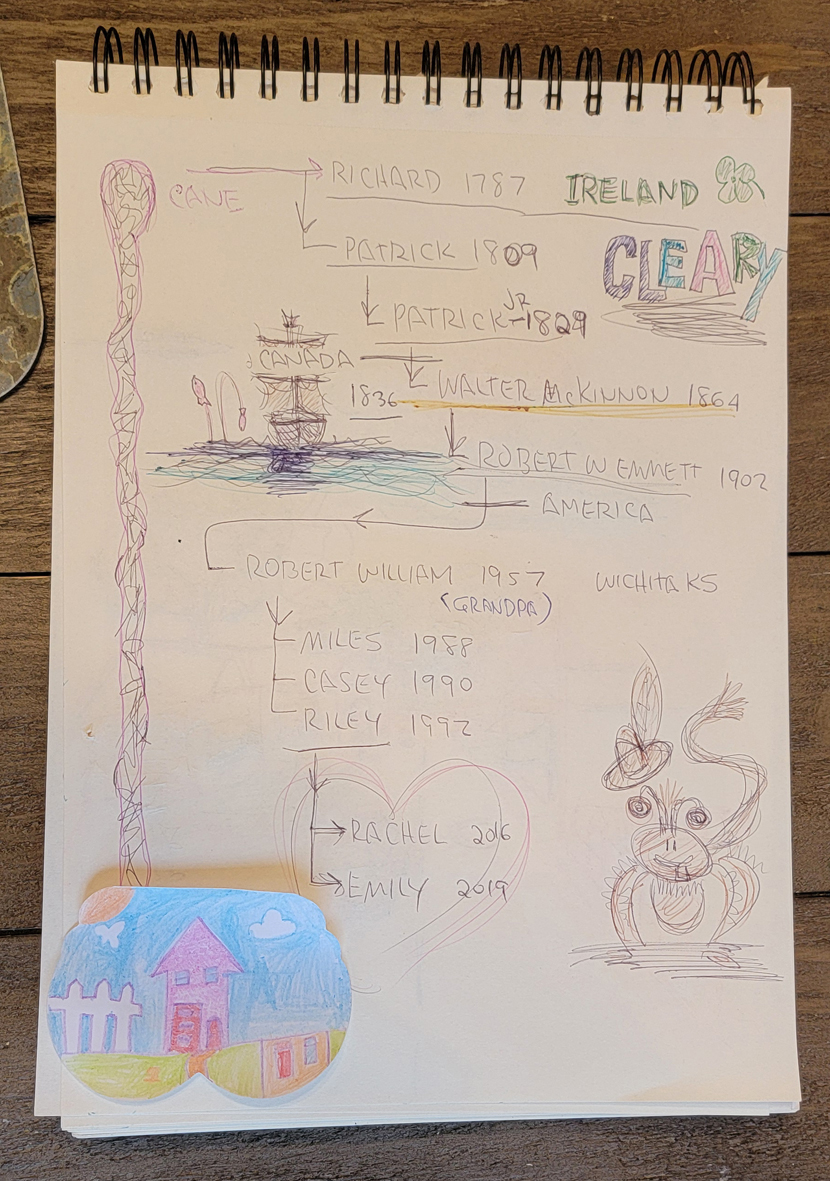 CANE RICHARD 1787 IRELAND
PATRICK 1809 CLEARY
PATRICK JR 1829
CANADA
1836 WALTER McKINNON 1864
ROBERT W EMMETT 1902
AMERICA
ROBERT WILLIAM 1957 WICHITA KS
(GRANDPA)
MILES 1988
CASEY 1990
RILEY 1992
RACHEL 2016
EMILY 2019